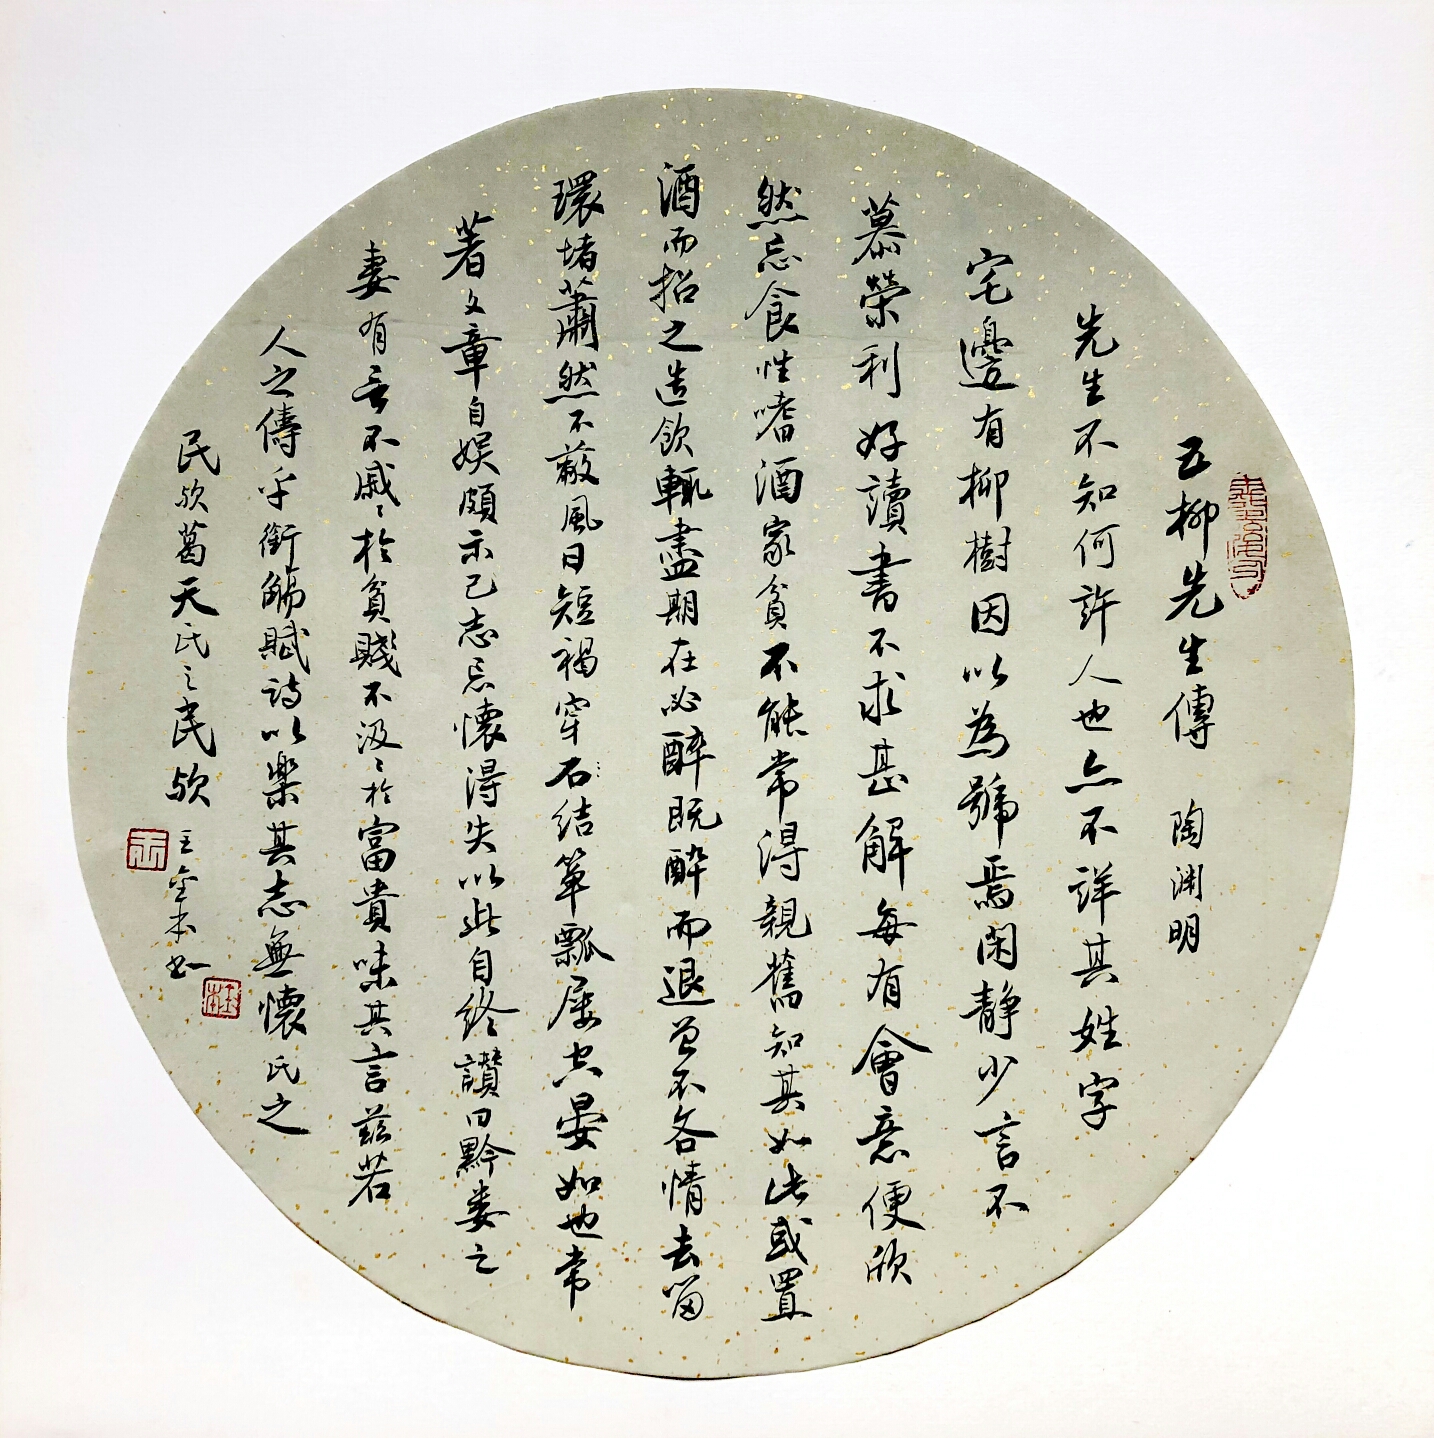 五柳先生傳 陶渊明
先生不知何許人也亦不详其姓字
宅邊有柳樹因以為號焉闲靜少言不
慕榮利好讀書不求甚解每有會意便欣
然忘食性嗜酒家貧不能常得親舊知其如此或置
酒而招之造飲輒盡期在必醉既醉而退曾不吝情去留
環堵蕭然不蔽風日短褐穿石结箪瓢屡空晏如也常
著文章自娱頗示己志忘懷得失以此自终讃曰黔婁之
妻有言不戚〻於貧賤不汲〻於富貴味其言兹若
人之儔乎銜觴賦诗以樂其志無懷氏之
民欤葛天氏之民欤 王金本书